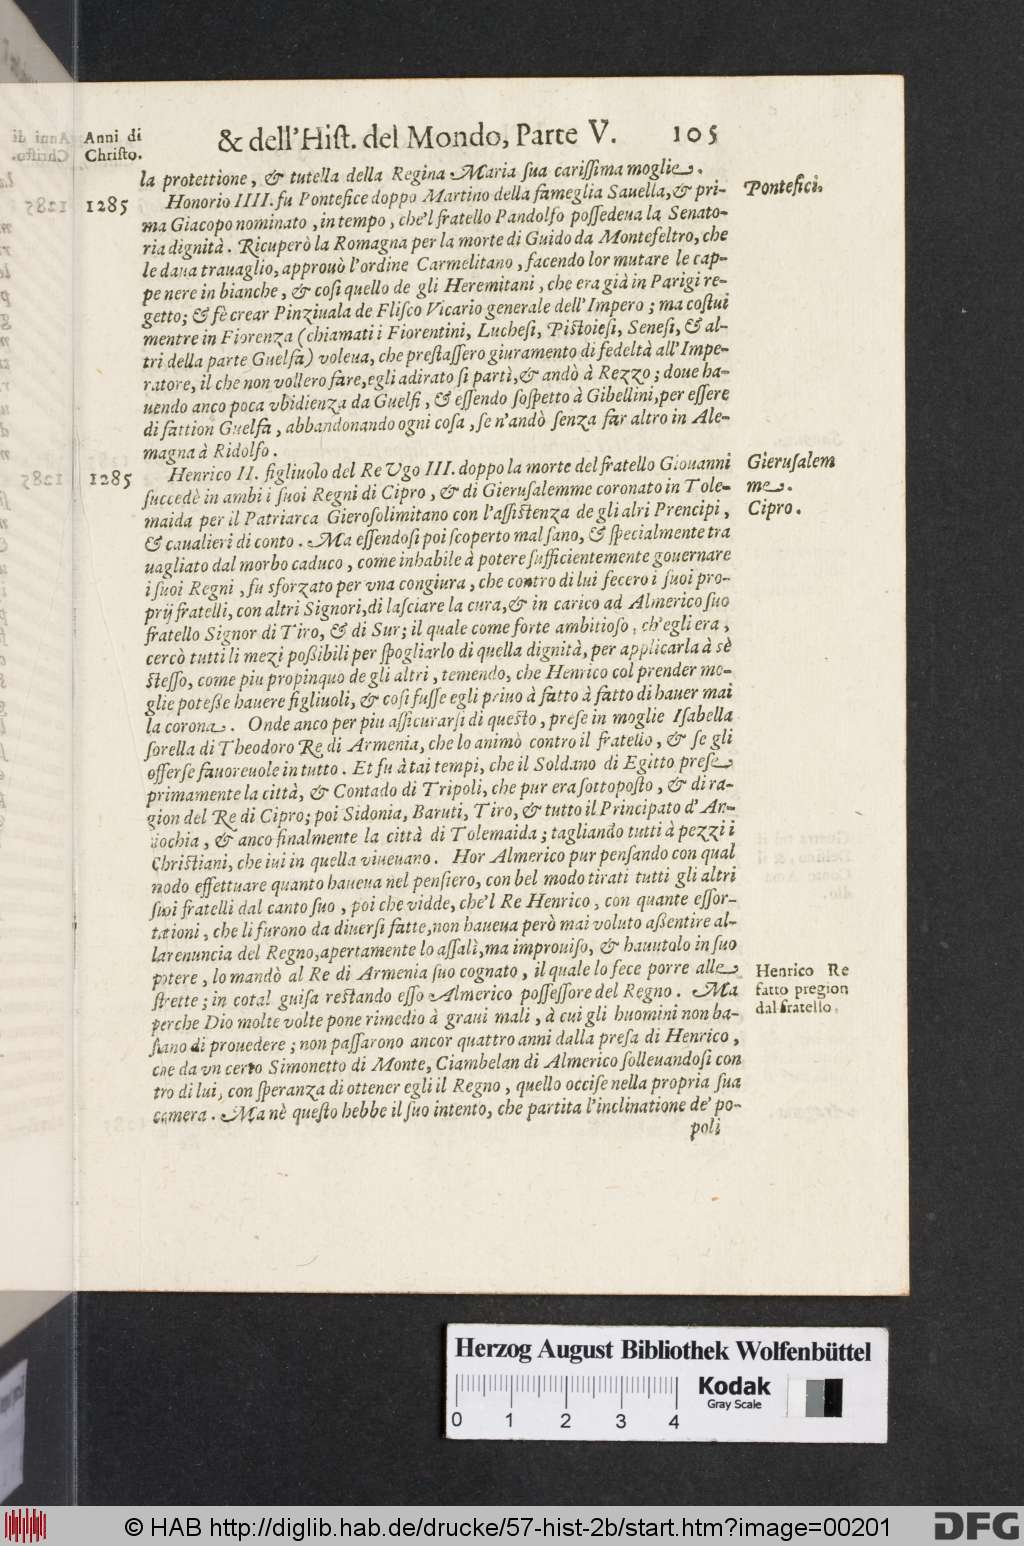 Anni di
Christo.
& dell'Hiſt. del Mondo, Parte V. 105
la protettione, & tutella della Regina Maria ſua cariſſima moglie.
1285 Honorio IIII. fu Pontefice doppo Martino della fameglia Sauella, & pri- Pontefici.
ma Giacopo nominato, in tempo, che'l fratello Pandolfo poſſedeua la Senato-
ria dignità. Ricuperò la Romagna per la morte di Guido da Montefeltro, che
le daua trauaglio, approuò l'ordine Carmelitano, facendo lor mutare le cap-
pe nere in bianche, & coſi quello de gli Heremitani, che era già in Parigi re-
getto; & fè crear Pinziuala de Fliſco Vicario generale dell'Impero; ma coſtui
mentre in Fiorenza (chiamati i Fiorentini, Lucheſi, Piſtoieſi, Seneſi, & al-
tri della parte Guelfa) voleua, che preſtaſſero giuramento di fedeltà all'Impe-
ratore, il che non vollero fare, egli adirato ſi partì, & andò à Rezzo; doue ha-
uendo anco poca vbidienza da Guelfi, & eſſendo ſoſpetto à Gibellini, per eſſere
di fattion Guelfa, abbandonando ogni coſa, ſe n'andò ſenza far altro in Ale-
magna à Ridolfo.
1285 Henrico II. figliuolo del Re Vgo III. doppo la morte del fratello Giouanni Gieruſalem
ſuccedè in ambi i ſuoi Regni di Cipro, & di Gieruſalemme coronato in Tole- me.
maida per il Patriarca Gieroſolimitano con l'aſſiſtenza de gli alri Prencipi, Cipro.
& caualieri di conto. Ma eſſendoſi poi ſcoperto mal ſano, & ſpecialmente tra
uagliato dal morbo caduco, come inhabile à potere ſufficientemente gouernare
i ſuoi Regni, fu sforzato per vna congiura, che contro di lui fecero i ſuoi pro-
prij fratelli, con altri Signori, di laſciare la cura, & in carico ad Almerico ſuo
fratello Signor di Tiro, & di Sur; il quale come forte ambitioſo, ch'egli era,
cercò tutti li mezi poßibili per ſpogliarlo di quella dignità, per applicarla à sè
ſteſſo, come piu propinquo de gli altri, temendo, che Henrico col prender mo-
glie poteße hauere figliuoli, & coſi fuſſe egli priuo à fatto à fatto di hauer mai
la corona. Onde anco per piu aſſicurarſi di queſto, preſe in moglie Iſabella
ſorella di Theodoro Re di Armenia, che lo animò contro il fratello, & ſe gli
offerſe fauoreuole in tutto. Et fu à tai tempi, che il Soldano di Egitto preſe
primamente la città, & Contado di Tripoli, che pur era ſottopoſto, & di ra-
gion del Re di Cipro; poi Sidonia, Baruti, Tiro, & tutto il Principato d' An-
tiochia, & anco finalmente la città di Tolemaida; tagliando tutti à pezzi i
Chriſtiani, che iui in quella viueuano. Hor Almerico pur penſando con qual
modo effettuare quanto haueua nel penſiero, con bel modo tirati tutti gli altri
ſuoi fratelli dal canto ſuo, poi che vidde, che'l Re Henrico, con quante eſſor-
tationi, che li furono da diuerſi fatte, non haueua però mai voluto aßentire al-
la renuncia del Regno, apertamente lo aſſalì, ma improuiſo, & hauutolo in ſuo
potere, lo mandò al Re di Armenia ſuo cognato, il quale lo fece porre alle Henrico Re
ſtrette; in cotal guiſa reſtando eſſo Almerico poſſeſſore del Regno. Ma fatto pregion
perche Dio molte volte pone rimedio à graui mali, à cui gli huomini non ba- dal fratello.
ſtano di prouedere; non paſſarono ancor quattro anni dalla preſa di Henrico,
che da vn certo Simonetto di Monte, Ciambelan di Almerico ſolleuandoſi con
tro di lui, con ſperanza di ottener egli il Regno, quello occiſe nella propria ſua
camera. Ma nè queſto hebbe il ſuo intento, che partita l'inclinatione de' po-
poli
Herzog August Bibliothek Wolfenbüttel
0 1 2 3 4
Kodak
Gray Scale
© HAB http://diglib.hab.de/drucke/57-hist-2b/start.htm?image=00201
DFG